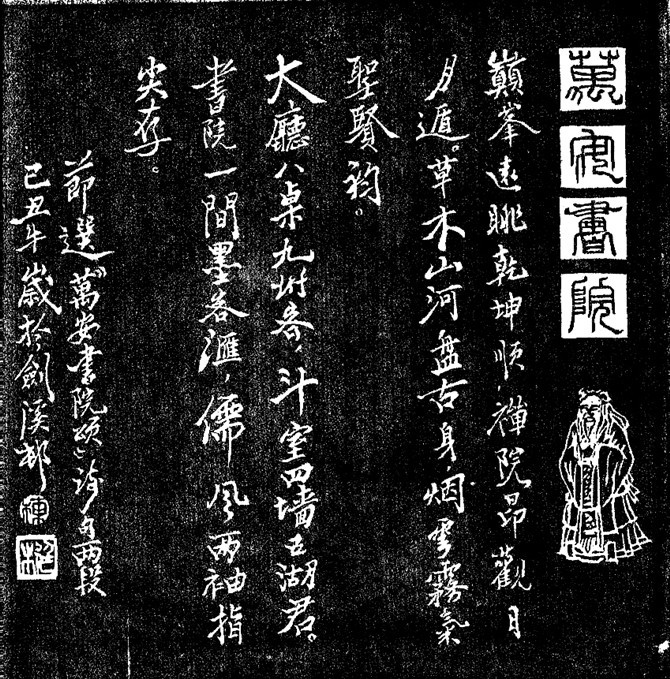 萬安書院
巔峯遠眺乾坤順,禪院昂觀日
月遁。草木山河盤古身,烟雲霧氣
聖賢韵。
大廳八桌九州客,斗室四墙五湖君。
書院一間墨客滙,儒風兩袖指
尖存。
節選《萬安書院頌》詩句兩段
己丑牛歲於劍溪邨